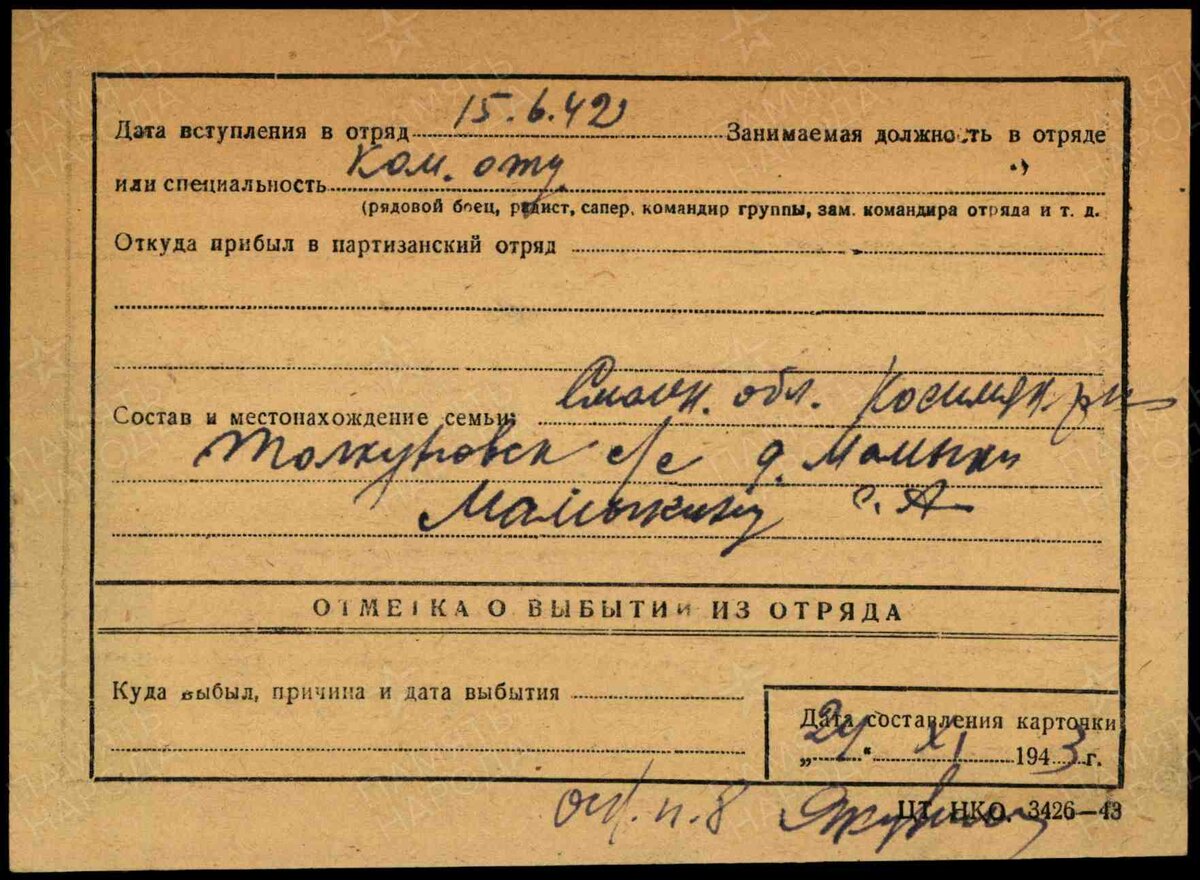 Дата вступления в отряд 15.6.42 Занимаемая должность в отряде
или специальность Ком. отд. "
(рядовой боец, радист, сапер, командир группы, зам. командира отряда и т. д.
Откуда прибыл в партизанский отряд
Состав и местонахождение семьи: Смолен. обл.
с/с д. Мамыки
Мамыкину С. А
ОТМЕТКА О ВЫБЫТИИ ИЗ ОТРЯДА
Куда выбыл, причина и дата выбытия
Дата составления карточки
„ " XI 1943 г.
п. 8
ЦТ НКО. 3426—43
ПАМЯТЬ НАРОДА